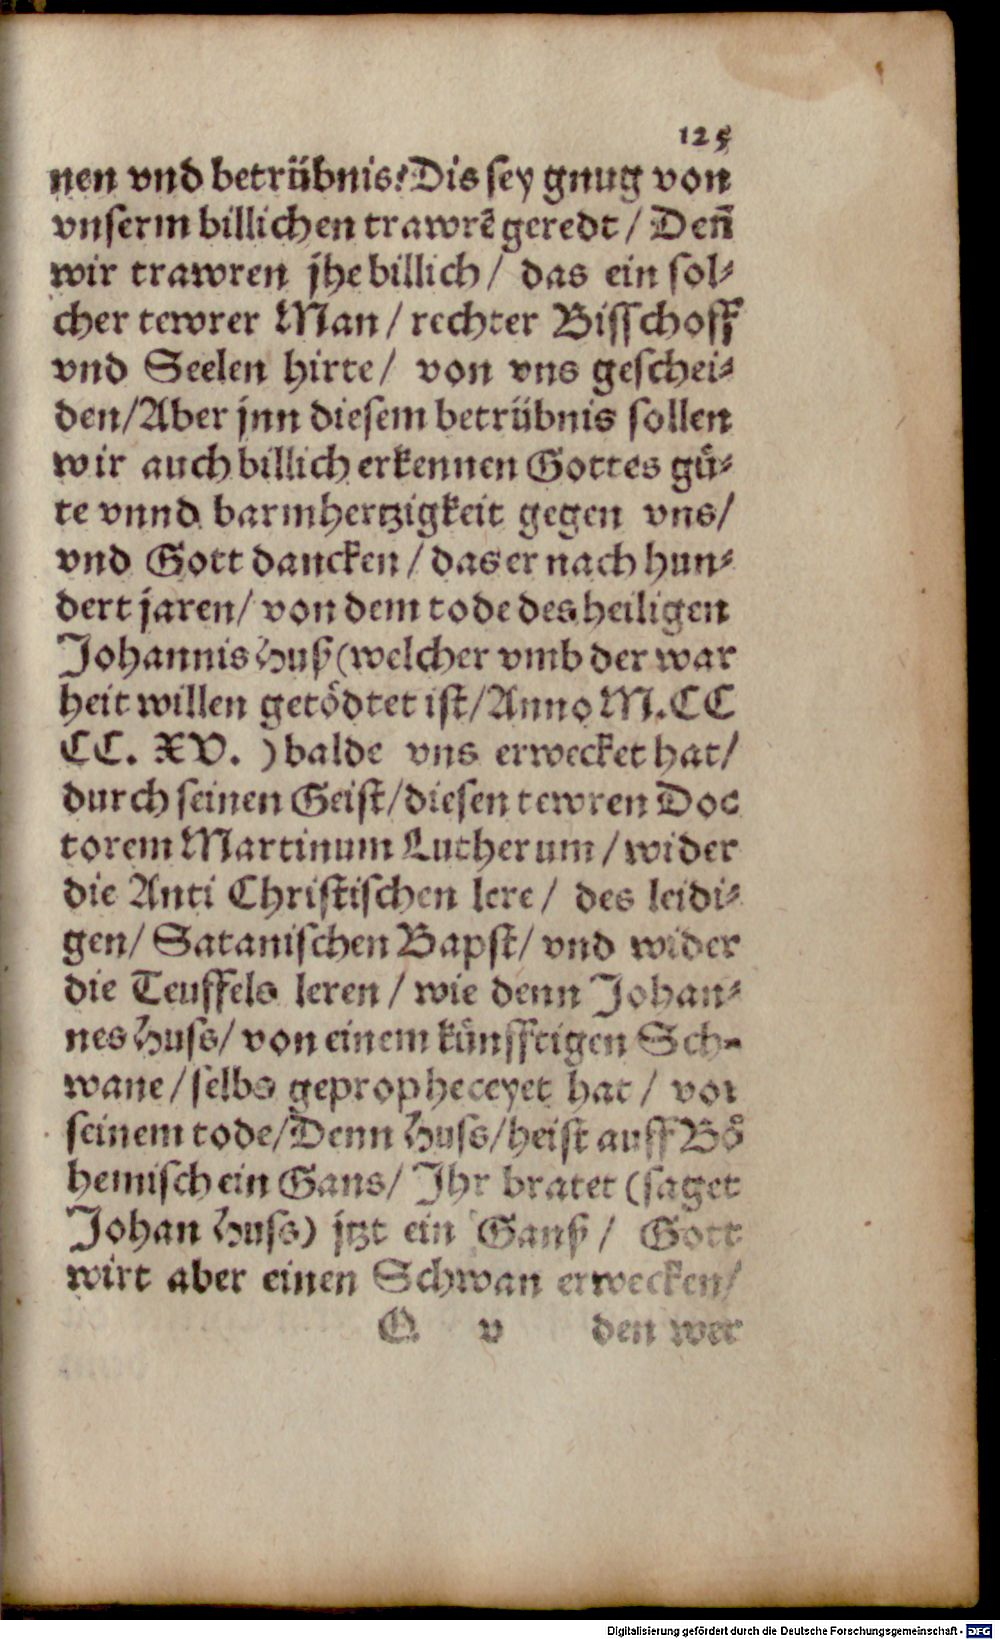 125
nen vnd betrübnis? Dis sey gnug von
vnserm billichen trawrē geredt / Deñ
wir trawren jhe billich / das ein sol⸗
cher tewrer Man / rechter Bisschoff
vnd Seelen hirte / von vns geschei⸗
den / Aber jnn diesem betrübnis sollen
wir auch billich erkennen Gottes gü⸗
te vnnd barmhertzigkeit gegen vns /
vnd Gott dancken / das er nach hun⸗
dert jaren / von dem tode des heiligen
Johannis Huß (welcher vmb der war
heit willen getödtet ist / Anno M.CC
CC. XV. ) balde vns erwecket hat /
durch seinen Geist / diesen tewren Doc
torem Martinum Lutherum / wider
die Anti Christischen lere / des leidi⸗
gen / Satanischen Bapst / vnd wider
die Teuffels leren / wie denn Johan⸗
nes Huss / von einem künfftigen Sch⸗
wane / selbs gepropheceyet hat / vor
seinem tode / Denn Huss / heist auff Bö
hemisch ein Gans / Ihr bratet (saget
Johan Huss) jtzt ein Ganß / Gott
wirt aber einen Schwan erwecken /
Q v den wer
Digitalisierung gefördert durch die Deutsche Forschungsgemeinschaft - DFG